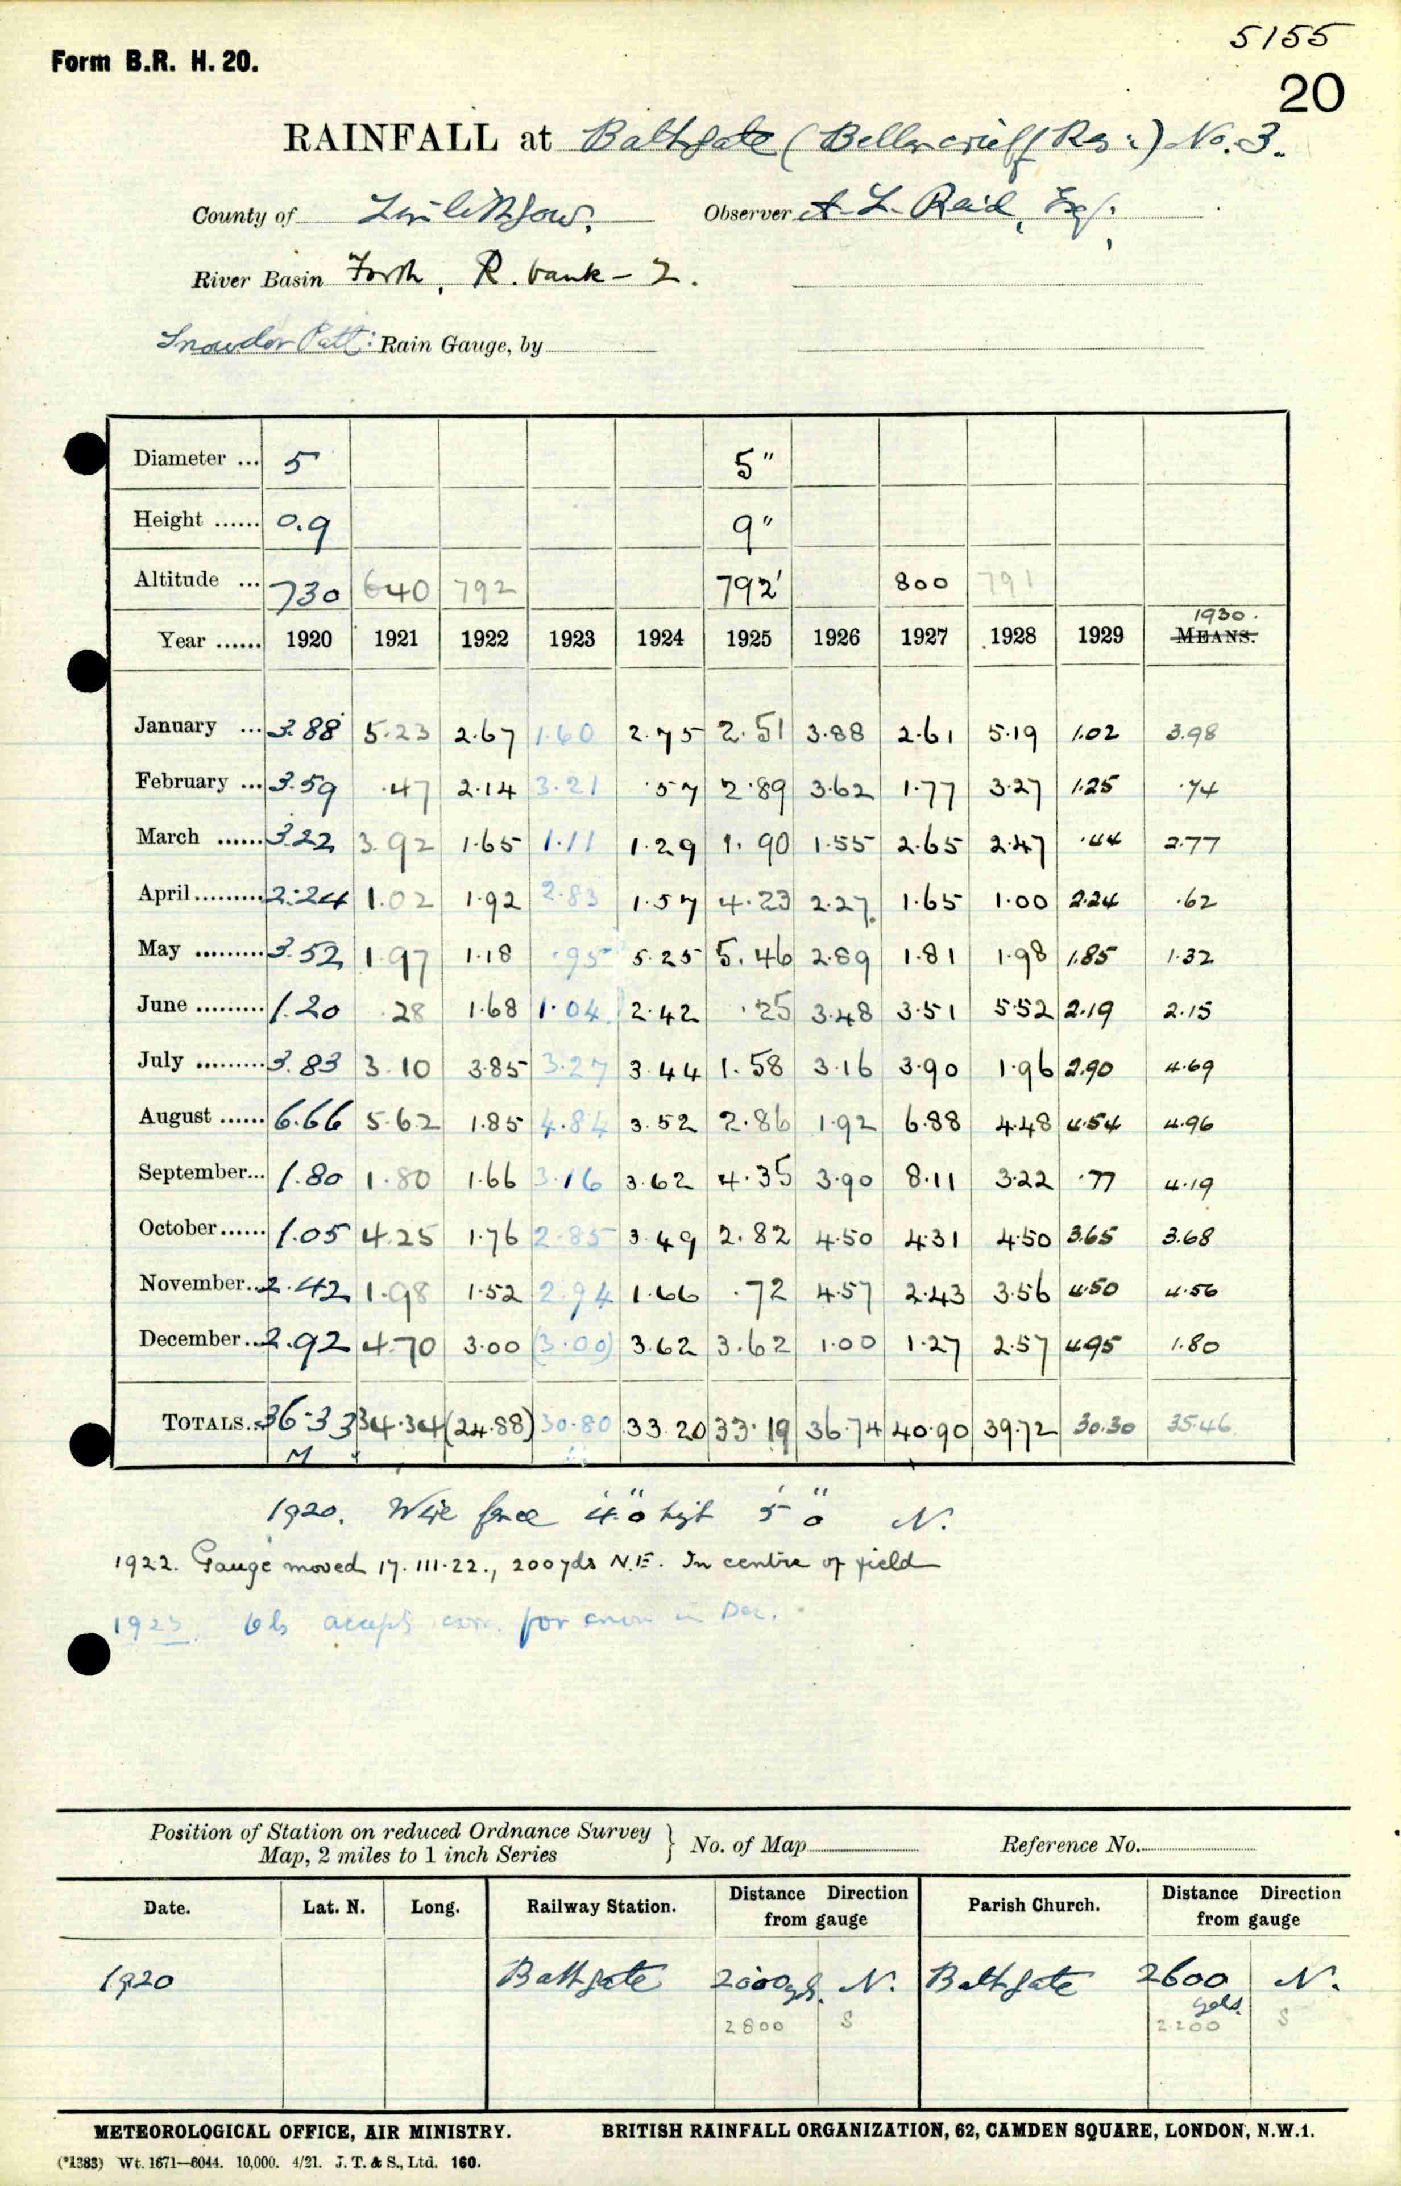 5155
Form B.R. H. 20.
20
RAINFALL at Bathgate (Bellencrieff Res :) No. 3.
County of Linlithgow. Observer A. L. Reid, Esq.
River Basin Forth, R. bank - 2.
Snowdon Patt: Rain Gauge, by
Diameter ... 5 5"
Height ...... 0.9 9"
Altitude ... 730 640 792 792' 800 791
1930.
Year ...... 1920 1921 1922 1923 1924 1925 1926 1927 1928 1929 MEANS.
January ... 3.88 5.23 2.67 1.60 2.75 2.51 3.88 2.61 5.19 1.02 3.98
February ... 3.59 .47 2.14 3.21 .57 2.89 3.62 1.77 3.27 1.25 .74
March ...... 3.22 3.92 1.65 1.11 1.29 1.90 1.55 2.65 2.47 .44 2.77
April ......... 2.24 1.02 1.92 2.83 1.57 4.23 2.27 1.65 1.00 2.24 .62
May ......... 3.52 1.97 1.18 .95 5.25 5.46 2.89 1.81 1.98 1.85 1.32
June ......... 1.20 .28 1.68 1.04 2.42 .25 3.48 3.51 5.52 2.19 2.15
July ......... 3.83 3.10 3.85 3.27 3.44 1.58 3.16 3.90 1.96 2.90 4.69
August ...... 6.66 5.62 1.85 4.84 3.52 2.86 1.92 6.88 4.48 4.54 4.96
September... 1.80 1.80 1.66 3.16 3.62 4.35 3.90 8.11 3.22 .77 4.19
October...... 1.05 4.25 1.76 2.85 3.49 2.82 4.50 4.31 4.50 3.65 3.68
November... 2.42 1.98 1.52 2.94 1.66 .72 4.57 2.43 3.56 4.50 4.56
December... 2.92 4.70 3.00 (3.00) 3.62 3.62 1.00 1.27 2.57 4.95 1.80
TOTALS... 36.33 34.34 (24.88) 30.80 33.20 33.19 36.74 40.90 39.72 30.30 35.46
M
1920. Wire fence 4' 0" high 5' 0" N.
1922. Gauge moved 17. III. 22., 200 yds N.E. In centre of field
1923. Obs accepts corr. for error in Dec.
Position of Station on reduced Ordnance Survey Map, 2 miles to 1 inch Series } No. of Map Reference No.
Date. Lat. N. Long. Railway Station. Distance Direction from gauge Parish Church. Distance Direction from gauge
1920 Bathgate 2000 yds. N. Bathgate 2600 yds. N.
2800 S 2200 S
METEOROLOGICAL OFFICE, AIR MINISTRY. BRITISH RAINFALL ORGANIZATION, 62, CAMDEN SQUARE, LONDON, N.W.1.
(*1383) Wt. 1671—6044. 10,000. 4/21. J. T. & S., Ltd. 160.